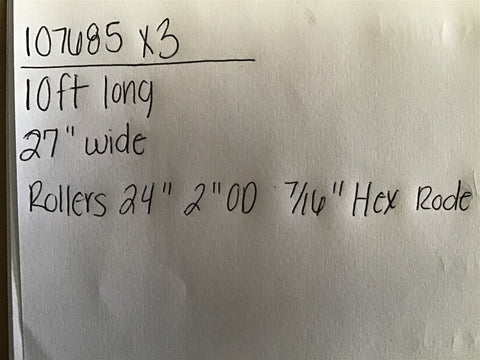 107685 x3
10ft long
27" wide
Rollers 24" 2"OD 7/16" Hex Rode